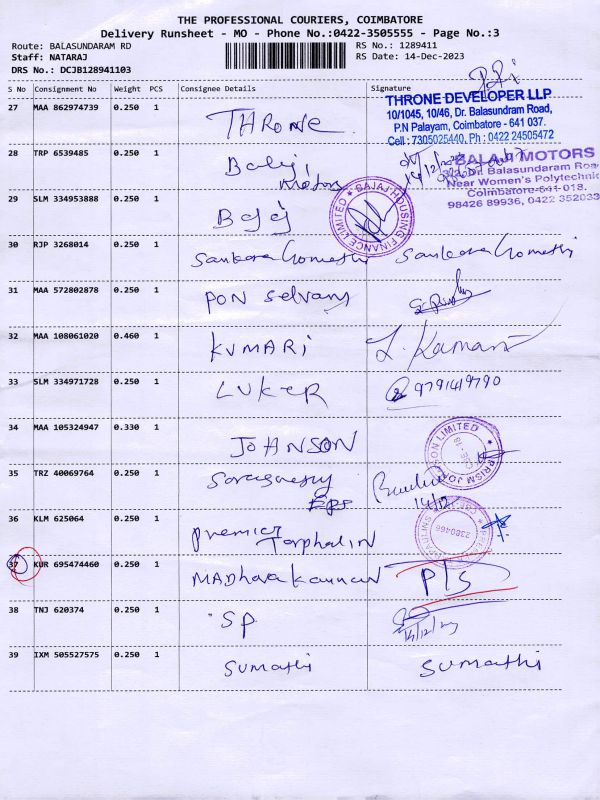 THE PROFESSIONAL COURIERS, COIMBATORE
Delivery Runsheet - MO - Phone No.:0422-3505555 - Page No.:3
Route: BALASUNDARAM RD
Staff: NATARAJ
DRS No.: DCJB128941103
RS No.: 1289411
RS Date: 14-Dec-2023
S No Consignment No Weight PCS Consignee Details Signature
27 MAA 862974739 0.250 1 THRONE
THRONE DEVELOPER LLP
10/1045, 10/46, Dr. Balasundram Road,
P.N Palayam, Coimbatore - 641 037.
Cell : 7305025440, Ph : 0422 24505472
28 TRP 6539485 0.250 1 Balaji Motors
BALAJI MOTORS
Dr. Balasundaram Road
Near Women's Polytechnic
Coimbatore-641-018.
98426 89936, 0422 352033
29 SLM 334953888 0.250 1 Bajaj
BAJAJ HOUSING FINANCE LIMITED
30 RJP 3268014 0.250 1 Sankara Gomethi Sankara Gomethi
31 MAA 572802878 0.250 1 PON Selvam
32 MAA 108061020 0.460 1 KUMARi
33 SLM 334971728 0.250 1 LUKER 9791419790
34 MAA 105324947 0.330 1 JOHNSON
PRISM JOHNSON LIMITED
35 TRZ 40069764 0.250 1 14/12
36 KLM 625064 0.250 1 Premier Tarphalin
37 KUR 695474460 0.250 1 MADhava kannan P/S
38 TNJ 620374 0.250 1 SP 14/12/23
39 IXM 505527575 0.250 1 Sumathi Sumathi